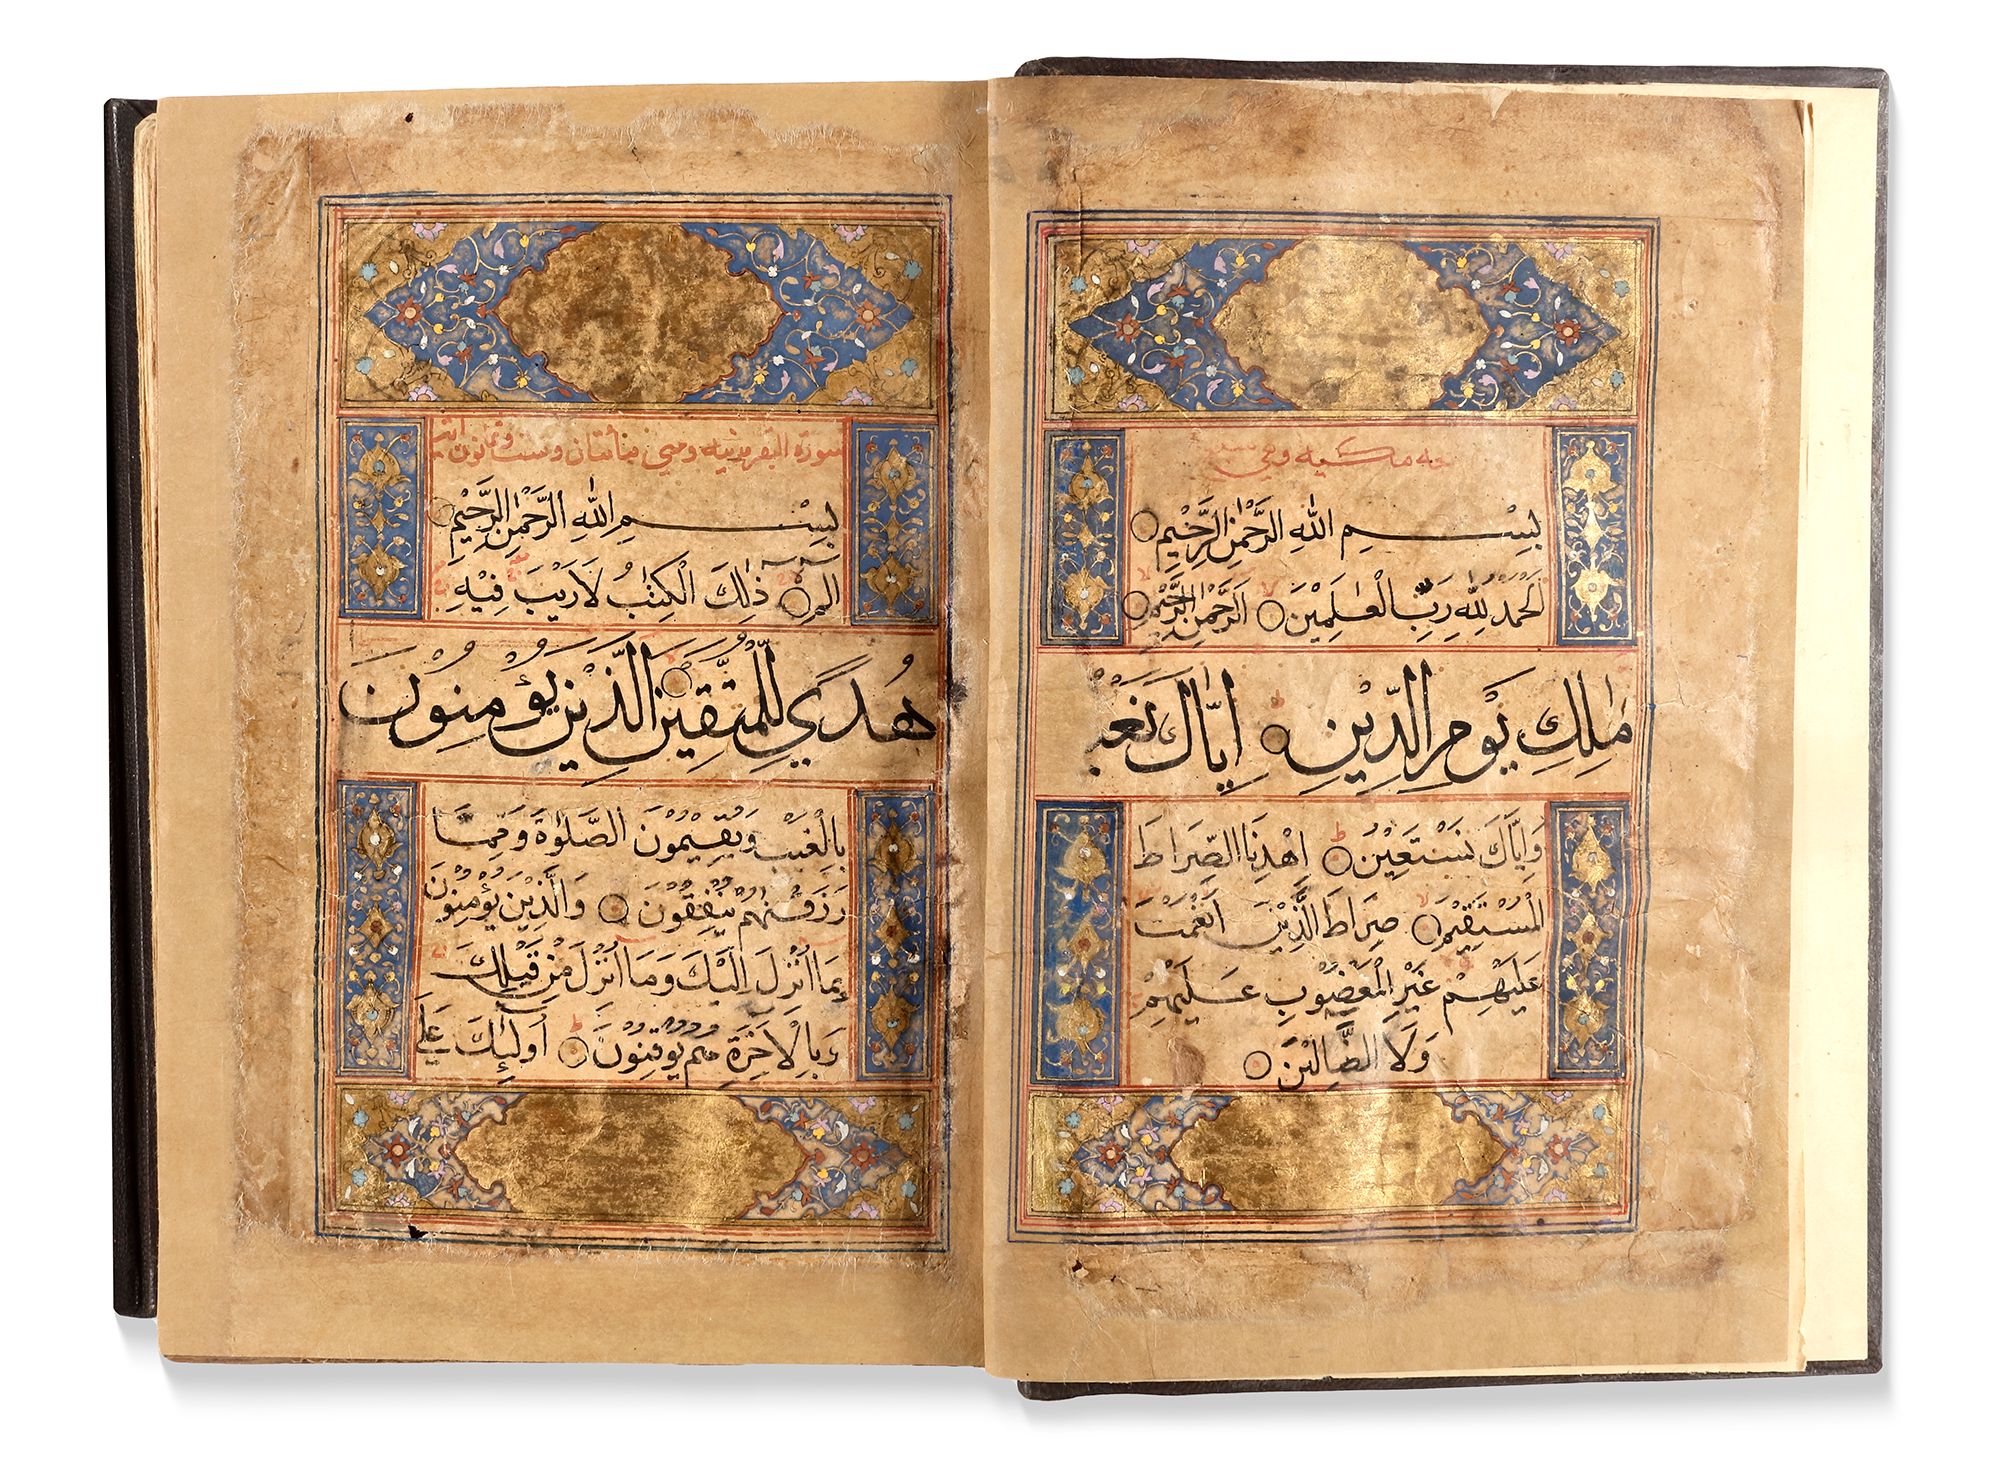 مكية وهي
بِسْمِ اللهِ الرَّحْمٰنِ الرَّحِيْمِ
اَلْحَمْدُ لِلّٰهِ رَبِّ الْعٰلَمِيْنَ الرَّحْمٰنِ الرَّحِيْمِ
مٰلِكِ يَوْمِ الدِّيْنِ اِيَّاكَ نَعْبُ
وَاِيَّاكَ نَسْتَعِيْنُ اِهْدِنَا الصِّرَاطَ
الْمُسْتَقِيْمَ صِرَاطَ الَّذِيْنَ اَنْعَمْتَ
عَلَيْهِمْ غَيْرِ الْمَغْضُوْبِ عَلَيْهِمْ
وَلَا الضَّالِّيْنَ
سورة البقر مدنية وهي مائتان وست وثمانون
بِسْمِ اللهِ الرَّحْمٰنِ الرَّحِيْمِ
الم ذٰلِكَ الْكِتٰبُ لَا رَيْبَ فِيْهِ
هُدًي لِلْمُتَّقِيْنَ الَّذِيْنَ يُؤْمِنُوْنَ
بِالْغَيْبِ وَيُقِيْمُوْنَ الصَّلٰوةَ وَمِمَّا
رَزَقْنٰهُمْ يُنْفِقُوْنَ وَالَّذِيْنَ يُؤْمِنُوْنَ
بِمَا اُنْزِلَ اِلَيْكَ وَمَا اُنْزِلَ مِنْ قَبْلِكَ
وَبِالْاٰخِرَةِ هُمْ يُوْقِنُوْنَ اُولٰئِكَ عَلٰي